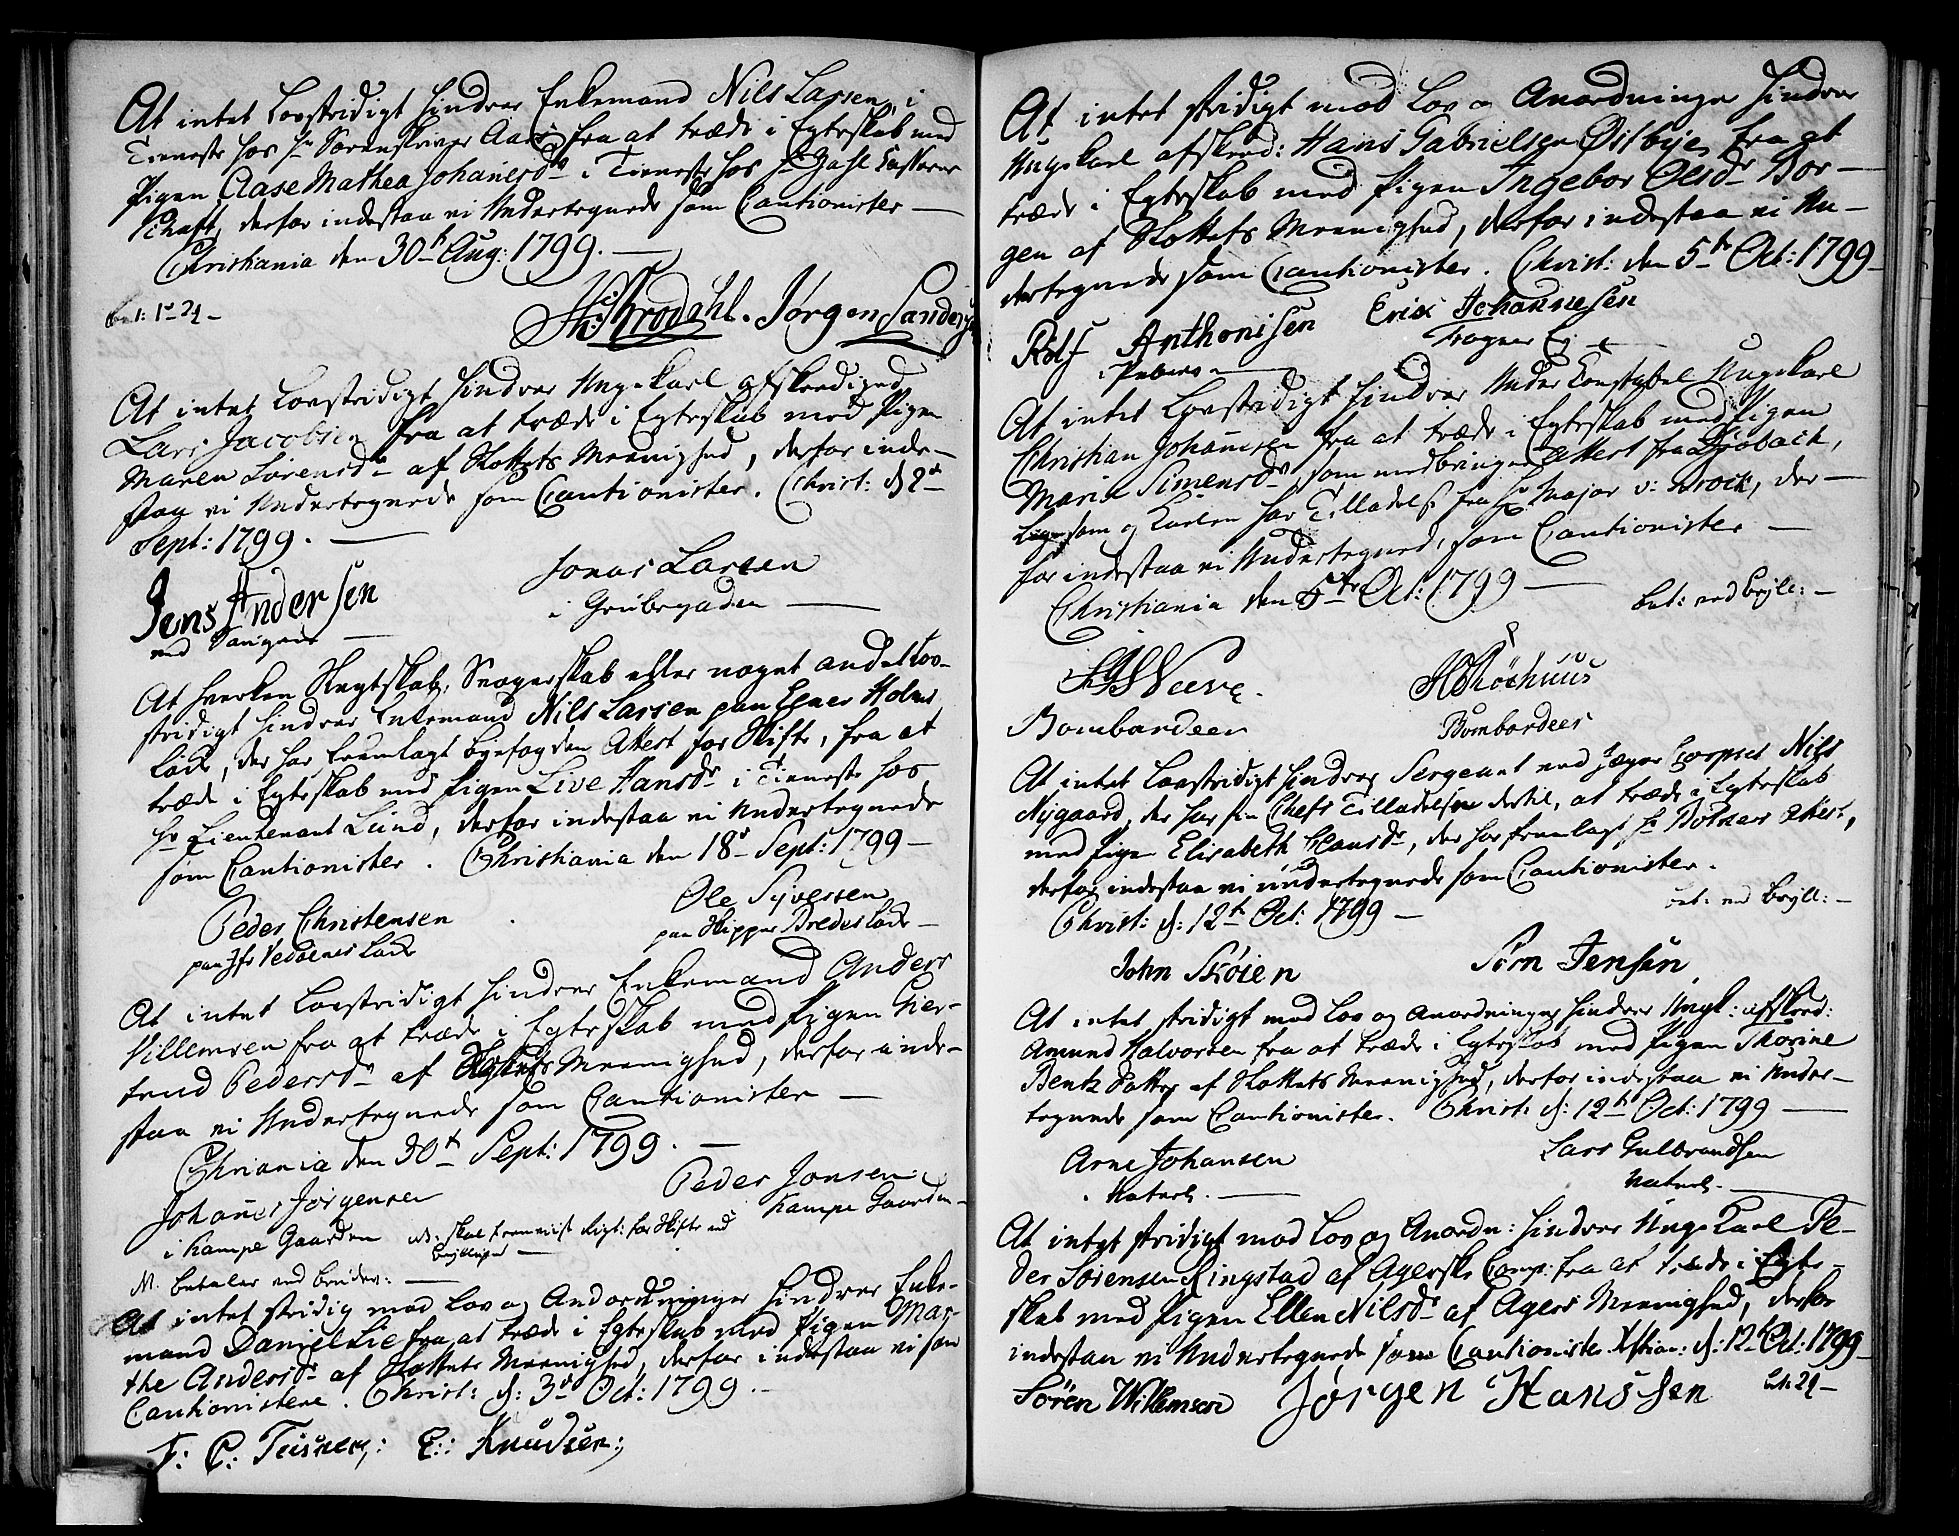 At intet Lovstridigt hindrer Enkemand Nils Larsen, i
Tieneste hos Hr Sorenskriver Aars fra at træde i Egteskab med
Pigen Aase Mathea Johanesdr i Tieneste hos Hr Gahl
derfor indestaa vi Undertegnede som Cautionister —
Christiania den 30te Aug: 1799. —
bet: 1 rd 24 —
Brodahl. Jørgen Sandersen
At intet Lovstridigt hindrer Ungekarl afskediged
Lars Jacobsen fra at træde i Egteskab med Pigen
Maren Sørensdr af Slottets Meenighed, derfor inde-
staa vi Undertegnede som Cautionister. Christ: d 2d
Sept: 1799. —
Jens Andersen
Jonas Larsen
ved
i Grubegaden —
At hverken Slegtskab, Svogerskab eller noget andet Lov-
stridigt hindrer Enkemand Nils Larsen paa Holms
Løkke, der har fremlagt byefogdens Attest for Skifte, fra at
træde i Egteskab med Pigen Live Hansdr i Tieneste hos
Hr Lieutenant Lund, derfor indestaa vi Undertegnede
som Cautionister. Christiania den 18d Sept: 1799 —
Peder Christensen
Ole Syversen
paa Løkke
paa Skipper Bredes Løkke —
At intet Lovstridigt hindrer Enkemand Anders
Villemsen fra at træde i Egteskab med Pigen Gier-
trud Pedersdr af Slottets Meenighed, derfor inde-
staa vi Undertegnede som Cautionister —
Chriania den 30te Sept: 1799. —
Johanes Jørgensen
Peder Jonsen
i Kampe Gaarden
Kampe Gaarden —
NB. skal fremviise Rigt: for Skifte ved
Bryllupet —
N. betaler ved bruder: —
At intet stridig mod Lov og Andordninger hindrer Enke-
mand Daniel Lie fra at træde i Egteskab med Pigen Mar-
the Andersdr af Slottets Meenighed, derfor indestaa vi som
Cautionistere. Christ: d: 3d Oct: 1799. —
F: C: Knudsen:
At intet stridigt mod Lov og Anordninger hindrer
Ungekarl afsked: Hans Gabrielsen Østbye, fra at
træde i Egteskab med Pigen Ingebor Olsdr Bor-
gen af Slottets Meenighed, derfor indestaa vi Un-
dertegnede som Cautionister. Christ: den 5te Oct: 1799 —
Rolf Anthonisen
Erik Johannesen
i Pebervigen —
At intet Lovstridigt hindrer Under Constabel Ungekarl
Christian Johannesen fra at træde i Egteskab med Pigen
Maria Simensdr, som medbringer Attest fra Drøback,
ligesom og Karlen har Tilladelse fra Hr Major v: Krock, der-
for indestaa vi Undertegned, som Cautionister —
Christiania den 5te Oct: 1799 —
bet: ved Bryll: —
Bombardeer
Bombardeer
At intet Lovstridigt hindrer Sergeant ved Jæger Corpset Nils
Nygaard, der har sin Chefs Tilladelse dertil, at træde i Egteskab
med Pigen Elisabeth Hansdr, der har fremlagt Hr Attest,
derfor indestaa vi undertegnede som Cautionister.
Christ: d: 12te Oct: 1799 —
bet: ved Bryll: —
John Skøien
Siørn Jensen
At intet stridigt mod Lov og Anordninger hindrer Ungk: afsked:
Amund Halvorsen fra at træde i Egteskab med Pigen Thorine
Bentz Datter af Slottets Meenighed, derfor indestaa vi Under-
tegnede som Cautionister. Christ: d: 12te Oct: 1799 —
Arne Johansen
Lars Gulbrandsen
At intet stridigt mod Lov og Anordn: hindrer Unge Karl Pe-
der Sørensen Ringstad af Agerske Comp: fra at træde i Egte-
skab med Pigen Ellen Nilsdr af Agers Meenighed, derfor
indestaa vi Undertegnede som Cautionister. d: 12te Oct: 1799
bet: 24 —
Sören Willemsen
Jørgen Hanssen